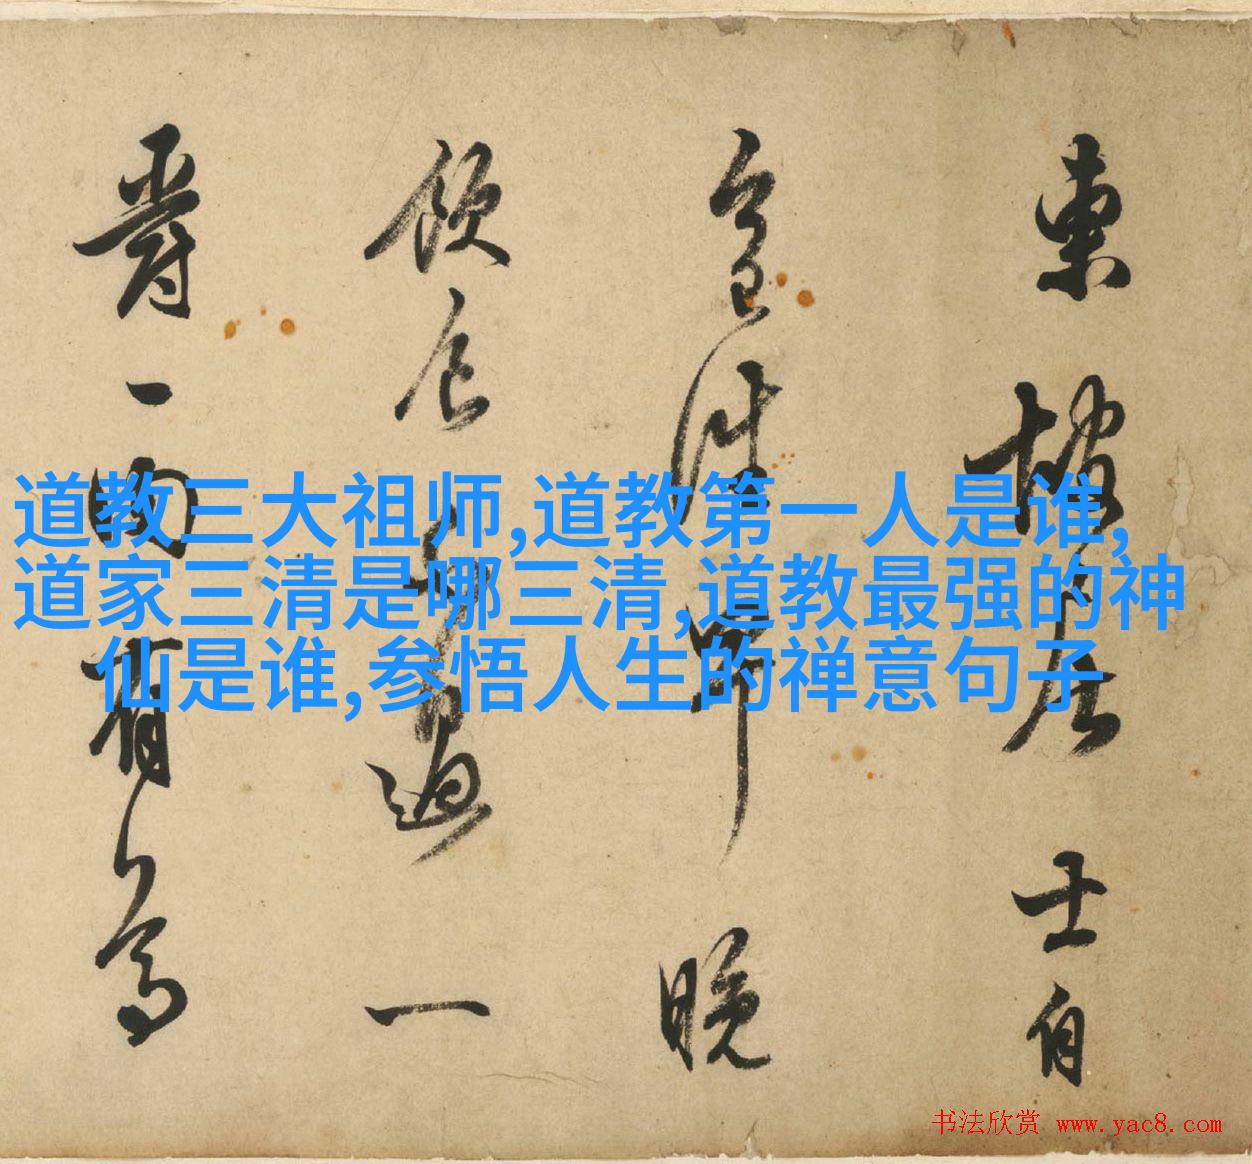 東坡居士自
晚
飲食不過一
爵一肉有
道教三大祖师,道教第一人是谁,
道家三清是哪三清,道教最强的神
仙是谁,参悟人生的禅意句子
书法欣赏 www.yac8.com